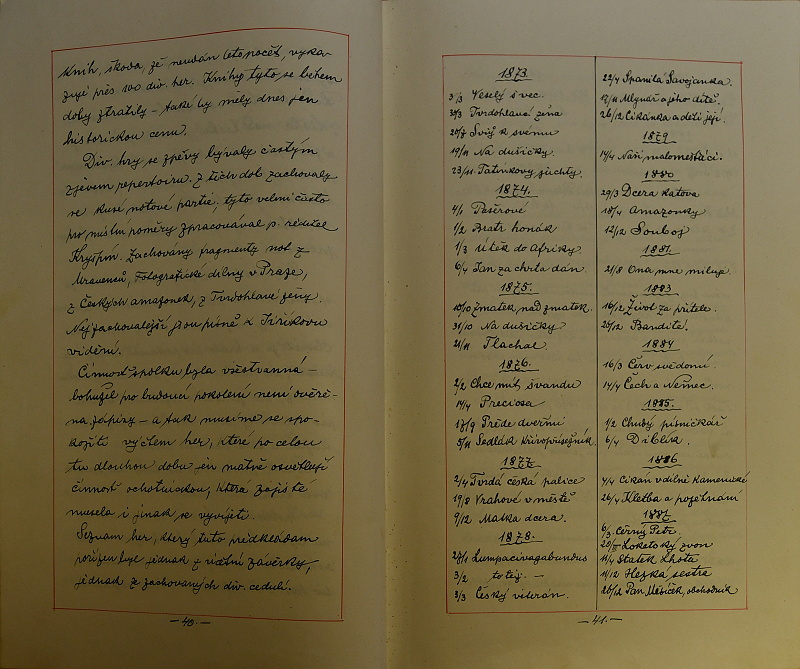 knih, škoda, že neudán letopočet, vyka-
zují přes 100 div. her. Knihy tyto se během
doby ztratily – také by měly dnes jen
historickou cenu.
Div. hry se zpěvy bývaly častým
zjevem repertoiru. Z těch dob zachovaly
se kusé notové partie, tyto velmi často
pro místní poměry zpracovával p. ředitel
Kryšpín. Zachovány fragmenty not z
Mravenců, Fotografické dílny v Praze,
z Českých amazonek, z Tvrdohlavé ženy.
Nejzachovalejší jsou písně k Jiříkovu
vidění.
Činnost spolku byla všestranná –
bohužel pro budoucí pokolení není ověře-
na zápisy – a tak musíme se spo-
kojiti výčtem her, které po celou
tu dlouhou dobu jen matně osvětlují
činnost ochotnickou, která zajisté
musela i jinak se vyvíjeti.
Seznam her, který tuto předkládám
pořízen byl jednak z účetní závěrky,
jednak ze zachovaných div. cedulí.
– 40. –
1873.
3/3 Veselý švec.
30/3 Tvrdohlavá žena
20/7 Svůj k svému
19/11 Na dušičky.
23/11 Tatínkovy juchty.
1874.
4/1 Pašerové
1/2 Bratr honák
1/3 Útěk do Afriky.
6/4 Jan za chrta dán.
1875.
10/10 Zmatek nad zmatek.
31/10 Na dušičky
21/11 Tlachal
1876.
2/2 Chce míti švandu
14/4 Preciosa
17/9 Přede dveřmi
5/11 Sedlák křivopřísežník.
1877.
2/4 Tvrdá česká palice
19/8 Vrahové v městě
9/12 Matka dcera.
1878.
27/1 Lumpacivagabundus
3/2 totéž. –
3/3 Český viterán.
22/4 Spanilá Savojanka.
17/11 Mlynář a jeho dítě.
26/12 Cikánka a děti její.
1879
14/4 Naši maloměšťáci.
1880
29/3 Dcera katova
18/4 Amazonky
12/12 Souboj
1881.
21/8 Ona mne miluje.
1883
16/12 Život za přítele.
25/12 Bandité.
1884
16/3 Červ svědomí.
14/4 Čech a Němec.
1885.
1/2 Chudý písničkář
6/4 Diblík.
1886
4/4 Cikán v dílně kamenické
26/4 Kletba a požehnání
1887
6/3 Černý Petr.
Loketský zvon
11/4 Statek Lhota
11/12 Hezká sestra
26/12 Pan Měšíček, obchodník
– 41. –